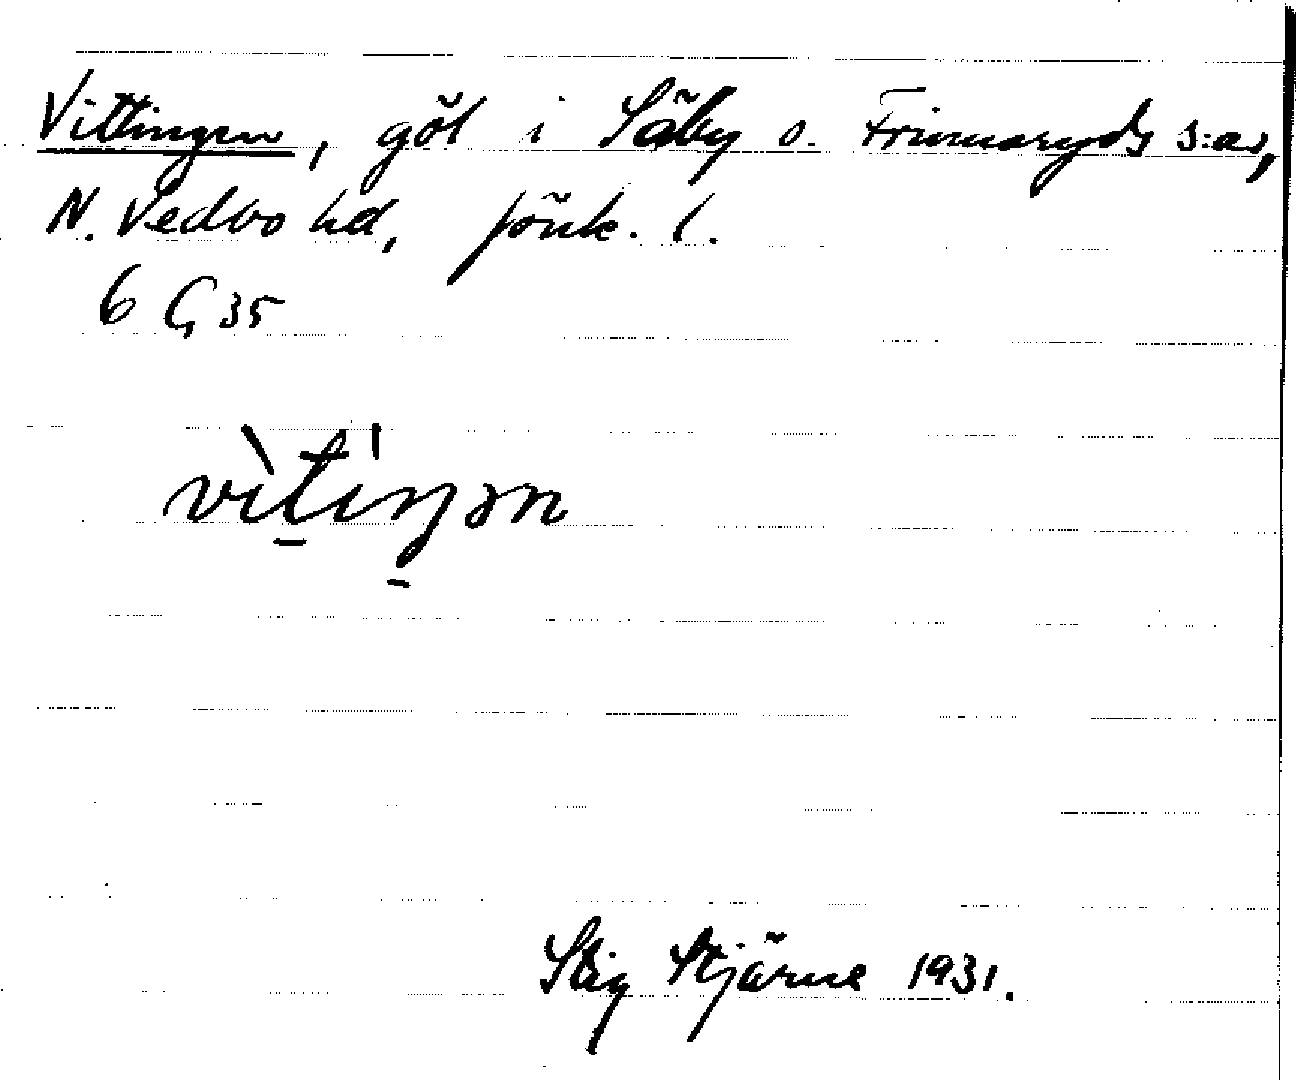 Vittingen, göl i Säby o. Frinnaryds s:ar,
N. Vedbo hd, Jönk. l.
6 G 35
vìtìŋən
Stig Stjärne 1931.